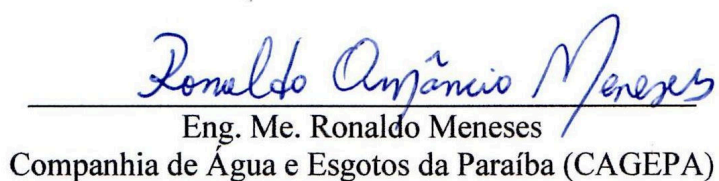 Ronaldo Amâncio Meneses
Eng. Me. Ronaldo Meneses
Companhia de Água e Esgotos da Paraíba (CAGEPA)